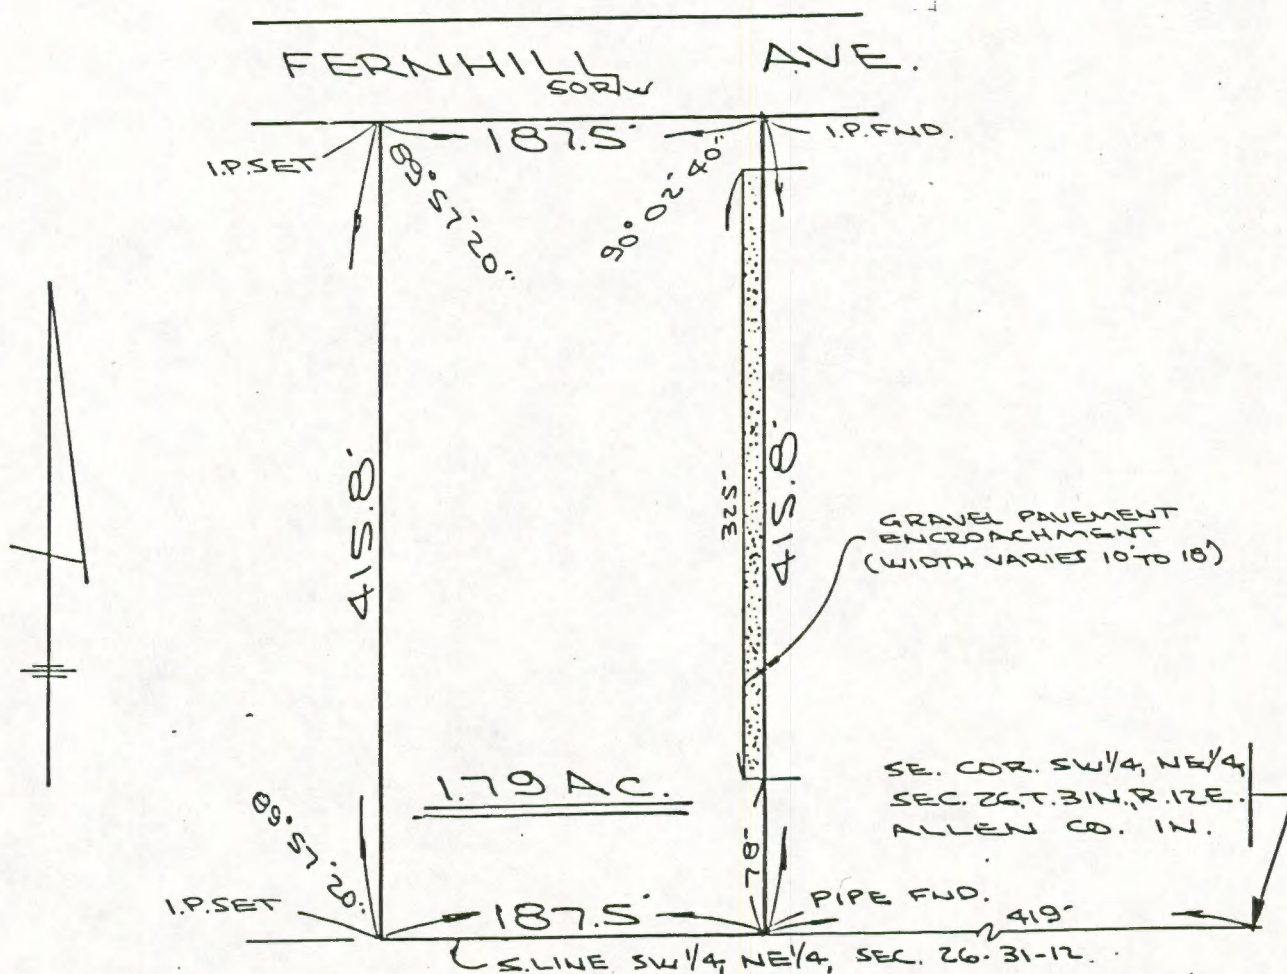 FERNHILL AVE.
50 R/W
I.P. SET
187.5'
I.P. FND.
89° 57' 20"
90° 02' 40"
415.8'
325'
415.8'
GRAVEL PAVEMENT
ENCROACHMENT
(WIDTH VARIES 10' TO 18')
1.79 AC.
SE. COR. SW 1/4, NE 1/4,
SEC. 26, T. 31N., R. 12E.
ALLEN CO. IN.
89° 57' 20"
78'
I.P. SET
187.5'
PIPE FND.
419'
S. LINE SW 1/4, NE 1/4, SEC. 26-31-12.